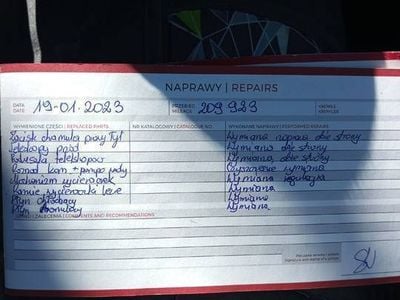 NAPRAWY | REPAIRS
DATA
DATE
19-01.2023
PRZEBIEG
MILEAGE
209.923
WYMIENIONE CZĘŚCI | REPLACED PARTS
NR KATALOGOWY | CATALOGUE NO.
WYKONANE NAPRAWY | PERFORMED REPAIRS
Zacisk hamulca prawy Tył
Wymiana naprawa obie strony
przód
Wymiana obie strony
Wymiana obie strony
Rozrząd kom + pompa wody
wymiana
Mechanizm wycieraczek
Wymiana regulacja
Ramię wycieraczki lewe
Wymiana
Płyn chłodzący
Wymiana
Płyn hamulcowy
Wymiana
UWAGI | ZALECENIA | COMMENTS AND RECOMMENDATIONS